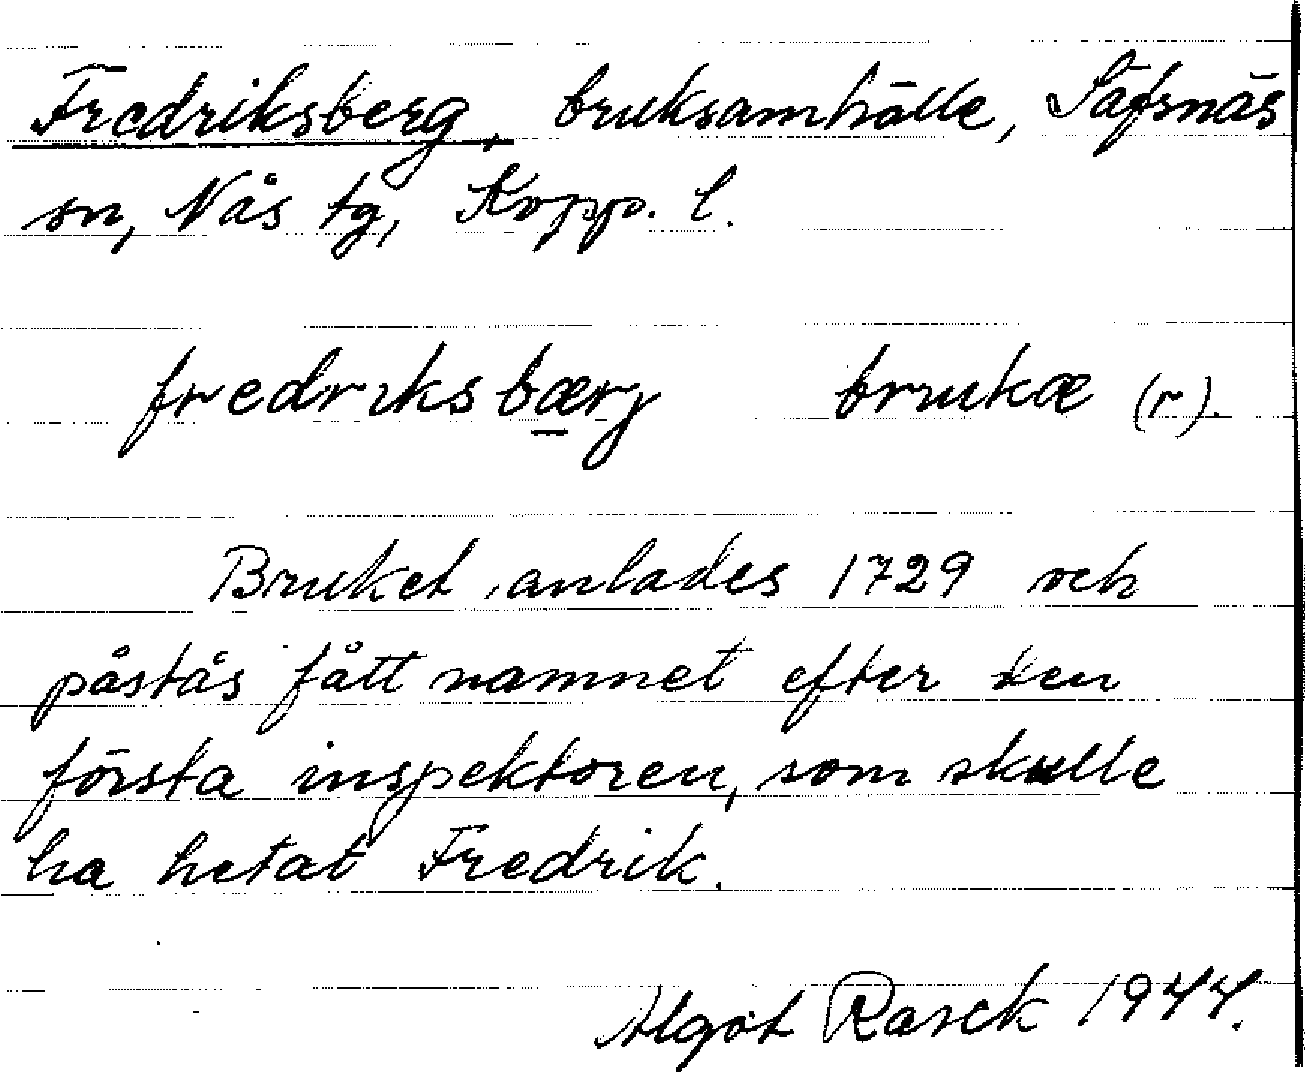 Fredriksberg, bruksamhälle, Säfsnäs
sn, Nås tg, Kopp. l.
fredriksbærj brukæ (r).
Bruket anlades 1729 och
påstås fått namnet efter den
första inspektoren, som skulle
ha hetat Fredrik.
Algot Rasck 1944.